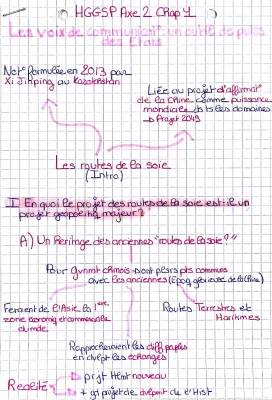 HGGSP Axe 2 Chap 1
Les voix de communicat°: un outil de puiss
des Etats
Not° formulée en 2013 par
Xi Jinping au Kazakhstan
Liée au projet d'affirmat°
de la Chine comme puissance
mondiale ds ts les domaines
→ Projet 2049
Les routes de la soie
(Intro)
I En quoi le projet des routes de la soie est-il un
projet géopolitiq majeur?
A) Un héritage des anciennes "routes de la soie?"
Pour gvnmt chinois → ont plsrs pts communs
avec les anciennes (Epoq glorieuse de la Chine)
Feraient de l'Asie la 1ère
zone économq et commerciale
du mde
Routes Terrestres et
Maritimes
Rapprocheraient les diff peuples
en dvlpt les échanges
Réalité
→ prjt géant nouveau
→ + gd projet de dvlpmt de l'Hist